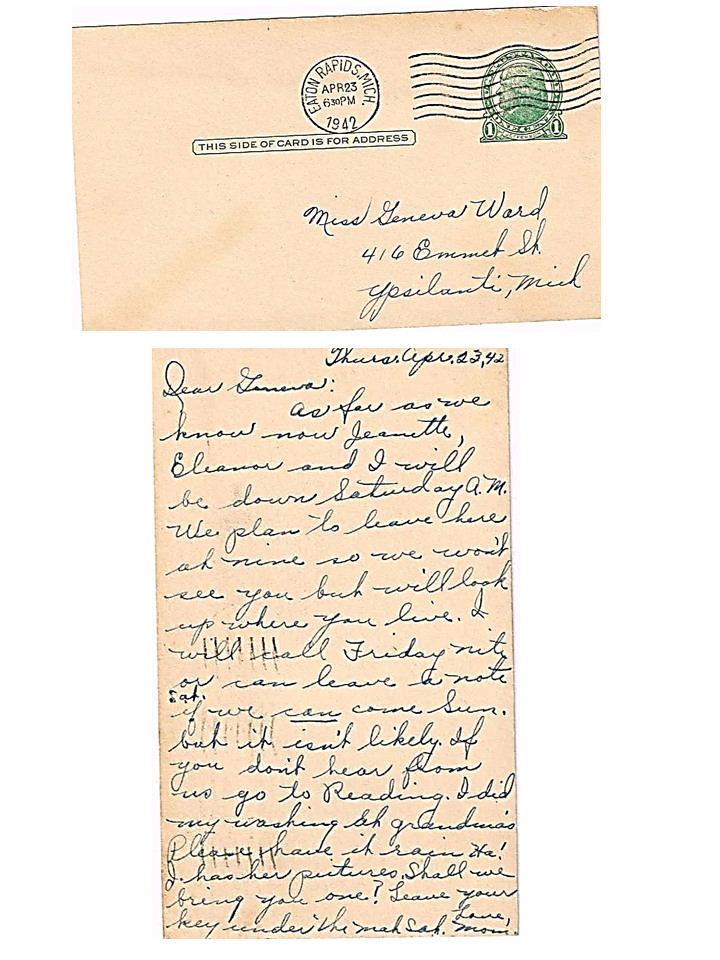 EATON RAPIDS, MICH.
APR 23
6 30 PM
1942
1 1
THIS SIDE OF CARD IS FOR ADDRESS
Miss Geneva Ward
416 Emmet St.
Ypsilanti, Mich
Thurs. Apr. 23, 42
Dear Geneva:
As far as we
know now Jeanette,
Eleanor and I will
be down Saturday A.M.
We plan to leave here
at nine so we won't
see you but will look
up where you live. I
will call Friday nite
or can leave a note
Sat.
if we can come Sun.
but it isn't likely. If
you don't hear from
us go to Reading. I did
my washing at grandma's
Please have it rain Ha!
J. has her pictures. Shall we
bring you one? Leave your
key under the mat Sat. Love,
Mom.